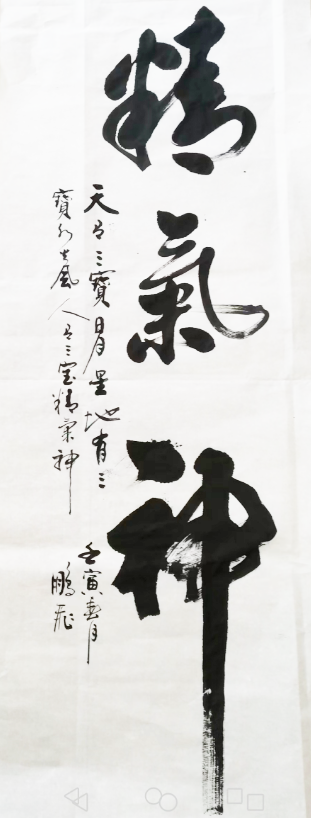 精氣神
天有三寶日月星地有三
寶水火風人有三宝精氣神
壬寅春月
鵬飛